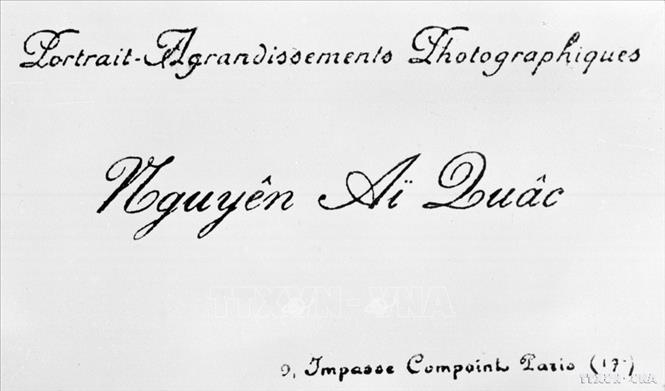 Portrait-Agrandissements Photographiques
Nguyên Aï Quâc
TTXVN - VNA
9, Impasse Compoint Paris (17e)
TTXVN - VNA